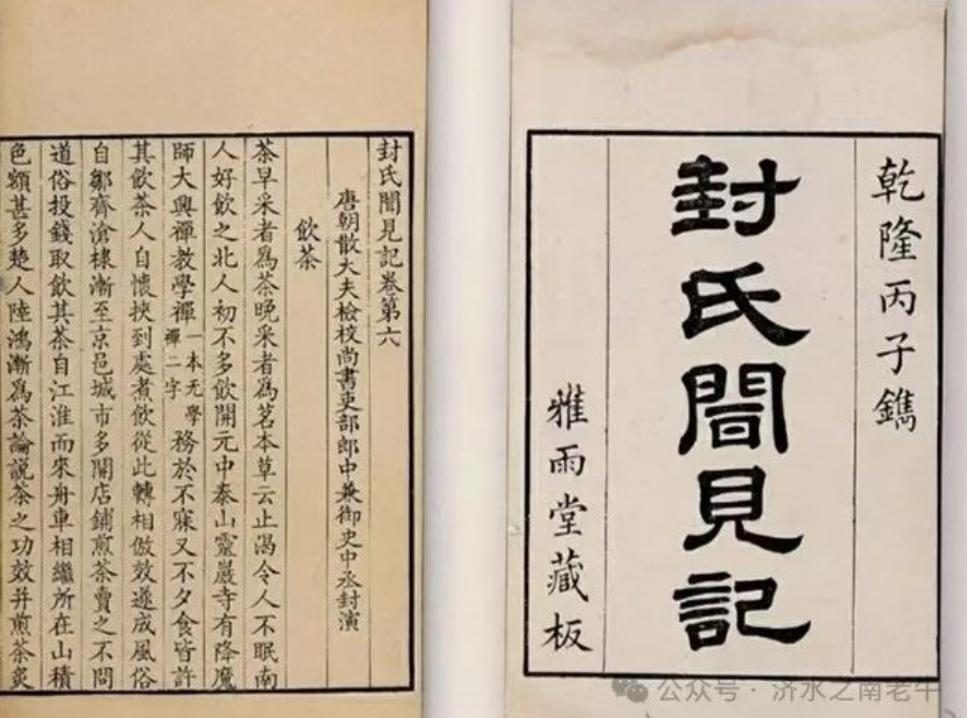 乾隆丙子鐫
封氏聞見記
雅雨堂藏板
封氏聞見記卷第六
唐朝散大夫檢校尚書吏部郎中兼御史中丞封演
飲茶
茶早采者爲茶晚采者爲茗本草云止渴令人不眠南
人好飲之北人初不多飲開元中泰山靈巖寺有降魔
師大興禪教學禪一本无學禪二字務於不寐又不夕食皆許
其飲茶人自懷挾到處煮飲從此轉相倣效遂成風俗
自鄒齊滄棣漸至京邑城市多開店鋪煎茶賣之不問
道俗投錢取飲其茶自江淮而來舟車相繼所在山積
色額甚多楚人陸鴻漸爲茶論說茶之功效并煎茶炙
公众号 · 济水之南老牛